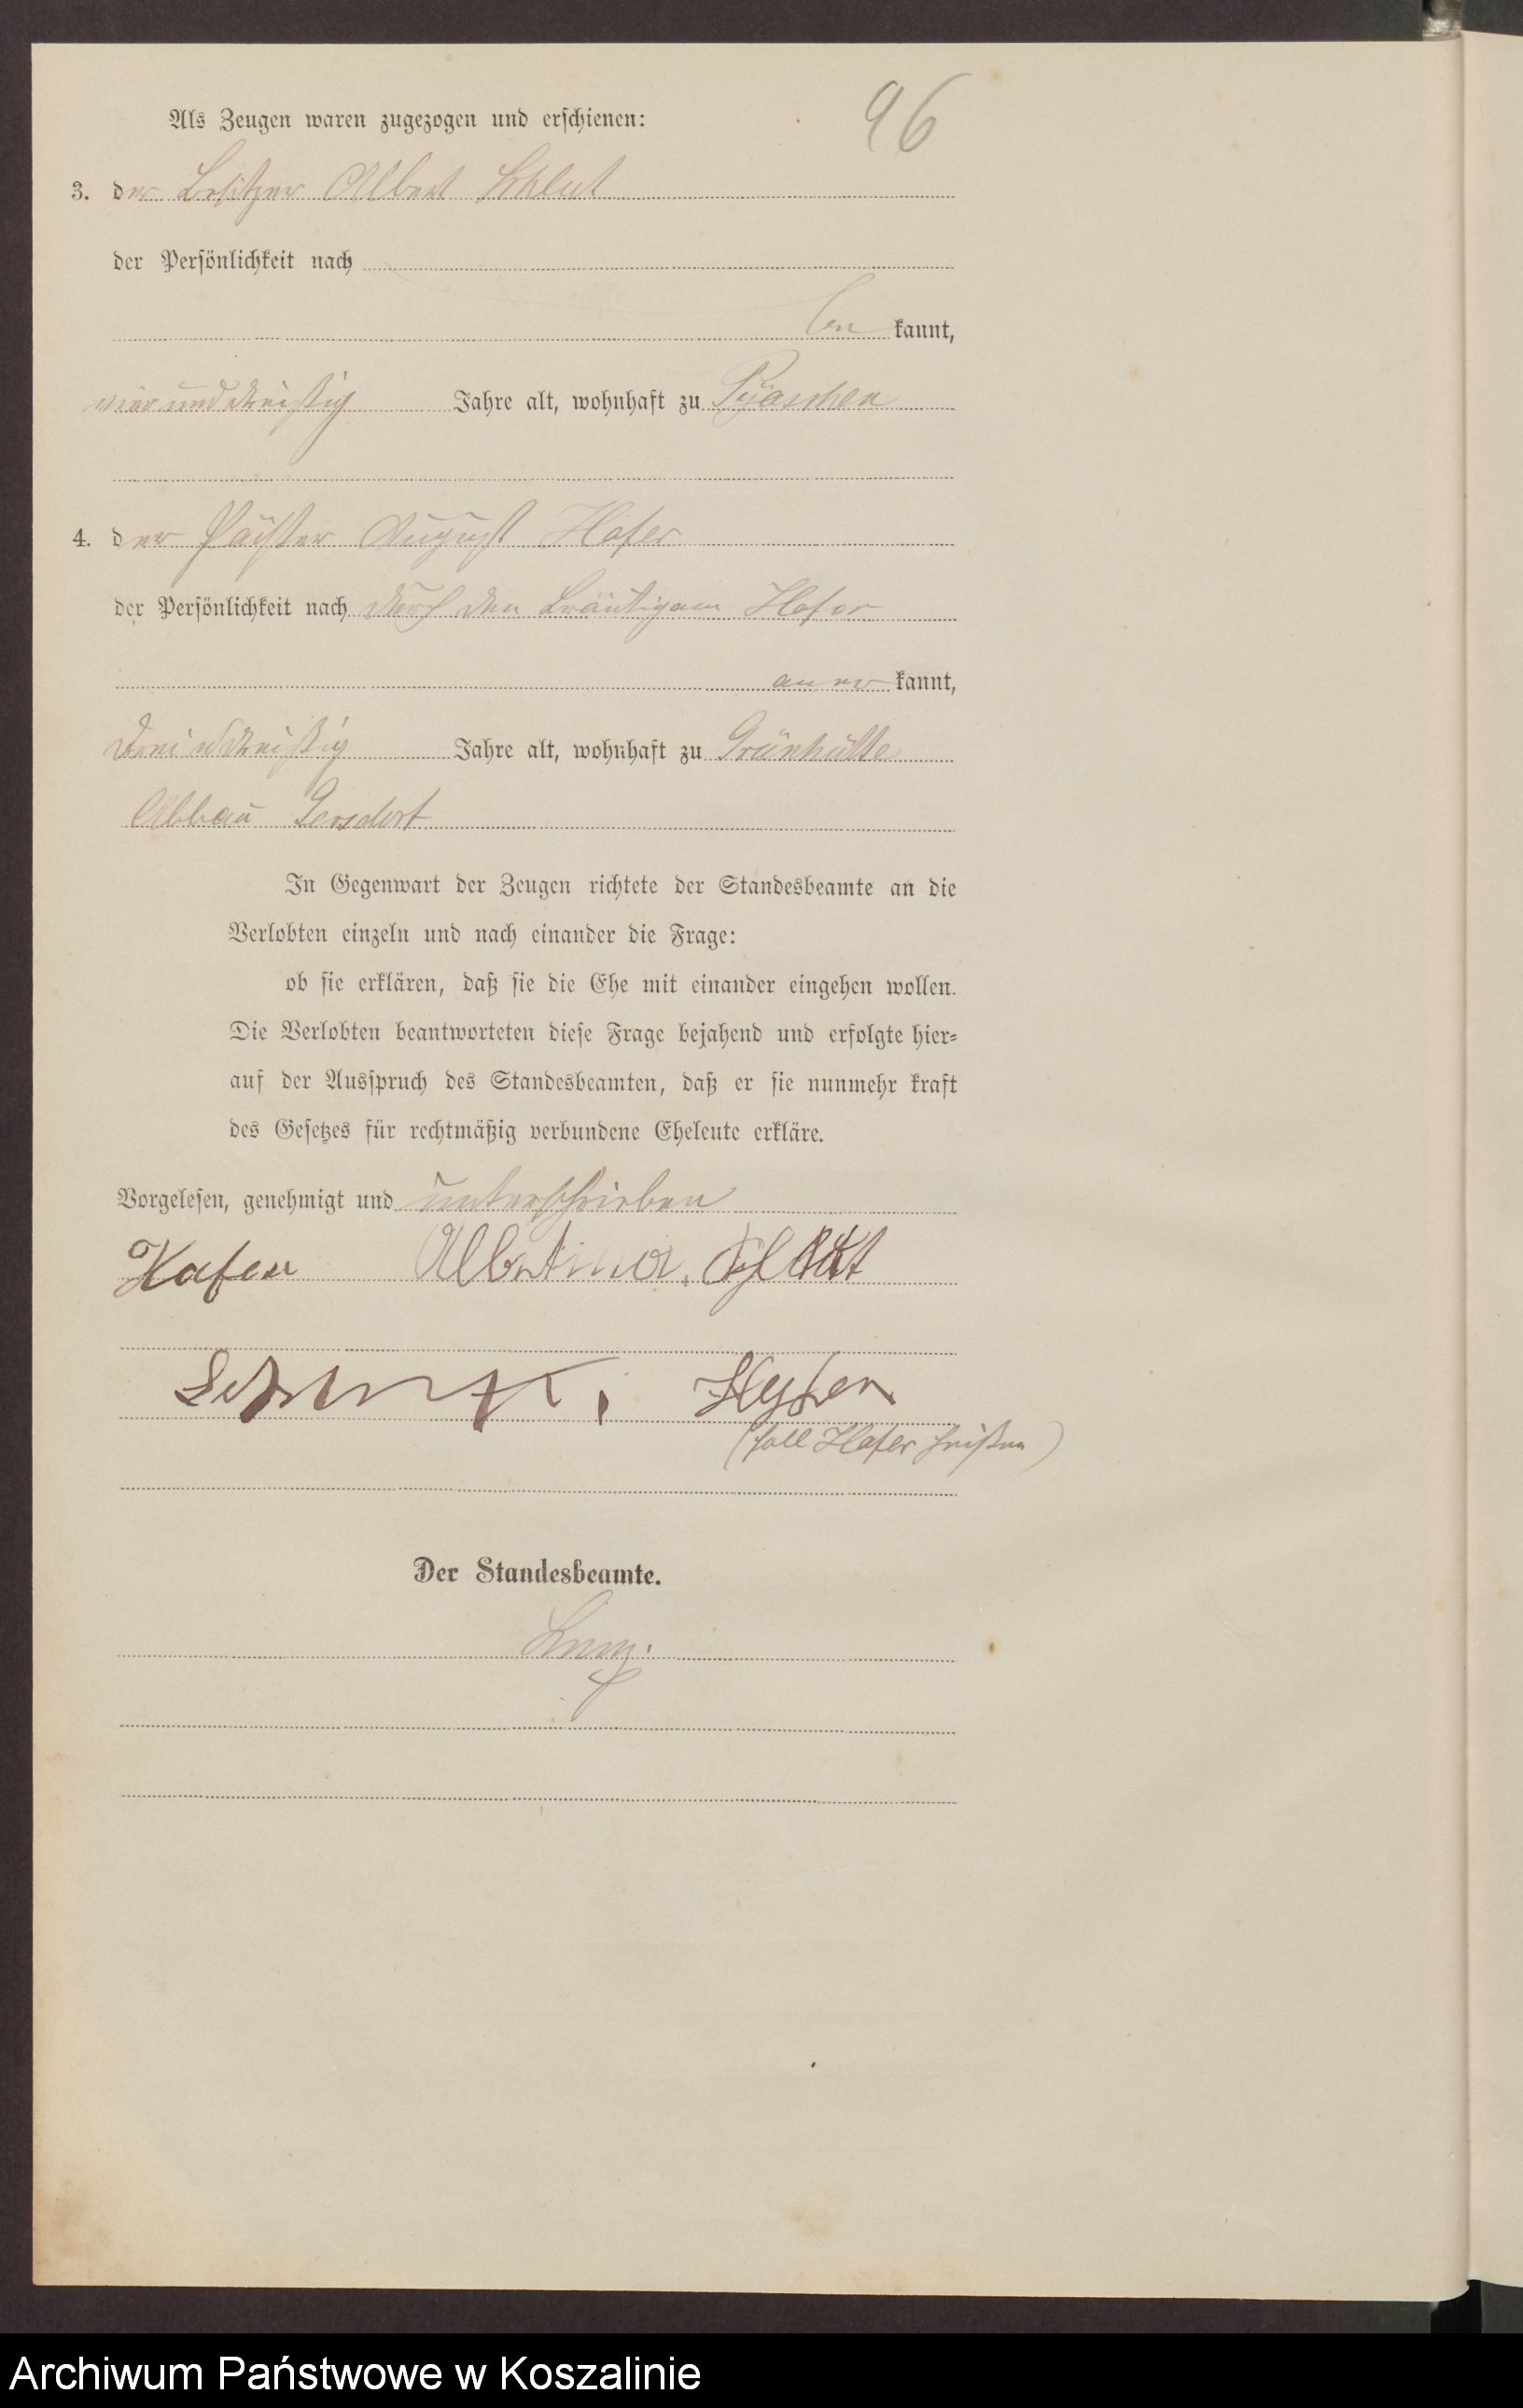 96
Als Zeugen waren zugezogen und erschienen:
3. der Besitzer Albert Schlut
der Persönlichkeit nach
be kannt,
vier und dreißig Jahre alt, wohnhaft zu Pyaschen
4. der Pächter August Hafer
der Persönlichkeit nach durch den Bräutigam Hafer
aner kannt,
dreiunddreißig Jahre alt, wohnhaft zu Grünhütte
Abbau Gersdorf
In Gegenwart der Zeugen richtete der Standesbeamte an die
Verlobten einzeln und nach einander die Frage:
ob sie erklären, daß sie die Ehe mit einander eingehen wollen.
Die Verlobten beantworteten diese Frage bejahend und erfolgte hier-
auf der Ausspruch des Standesbeamten, daß er sie nunmehr kraft
des Gesetzes für rechtmäßig verbundene Eheleute erkläre.
Vorgelesen, genehmigt und unterschrieben
Hafer Albertine Schlut
(soll Hafer heißen)
Der Standesbeamte.
Archiwum Państwowe w Koszalinie